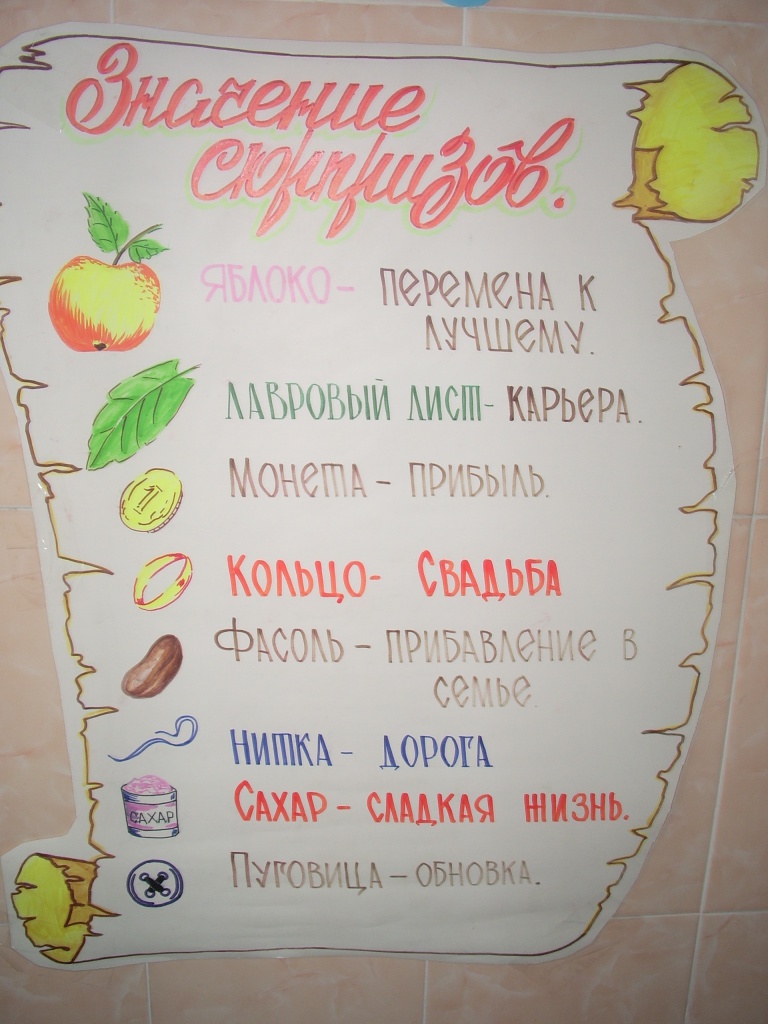 Значение
сюрпризов.
ЯБЛОКО - ПЕРЕМЕНА К
ЛУЧШЕМУ.
ЛАВРОВЫЙ ЛИСТ - КАРЬЕРА.
1
МОНЕТА - ПРИБЫЛЬ.
КОЛЬЦО - СВАДЬБА
ФАСОЛЬ - ПРИБАВЛЕНИЕ В
СЕМЬЕ.
НИТКА - ДОРОГА
САХАР - СЛАДКАЯ ЖИЗНЬ.
САХАР
ПУГОВИЦА - ОБНОВКА.